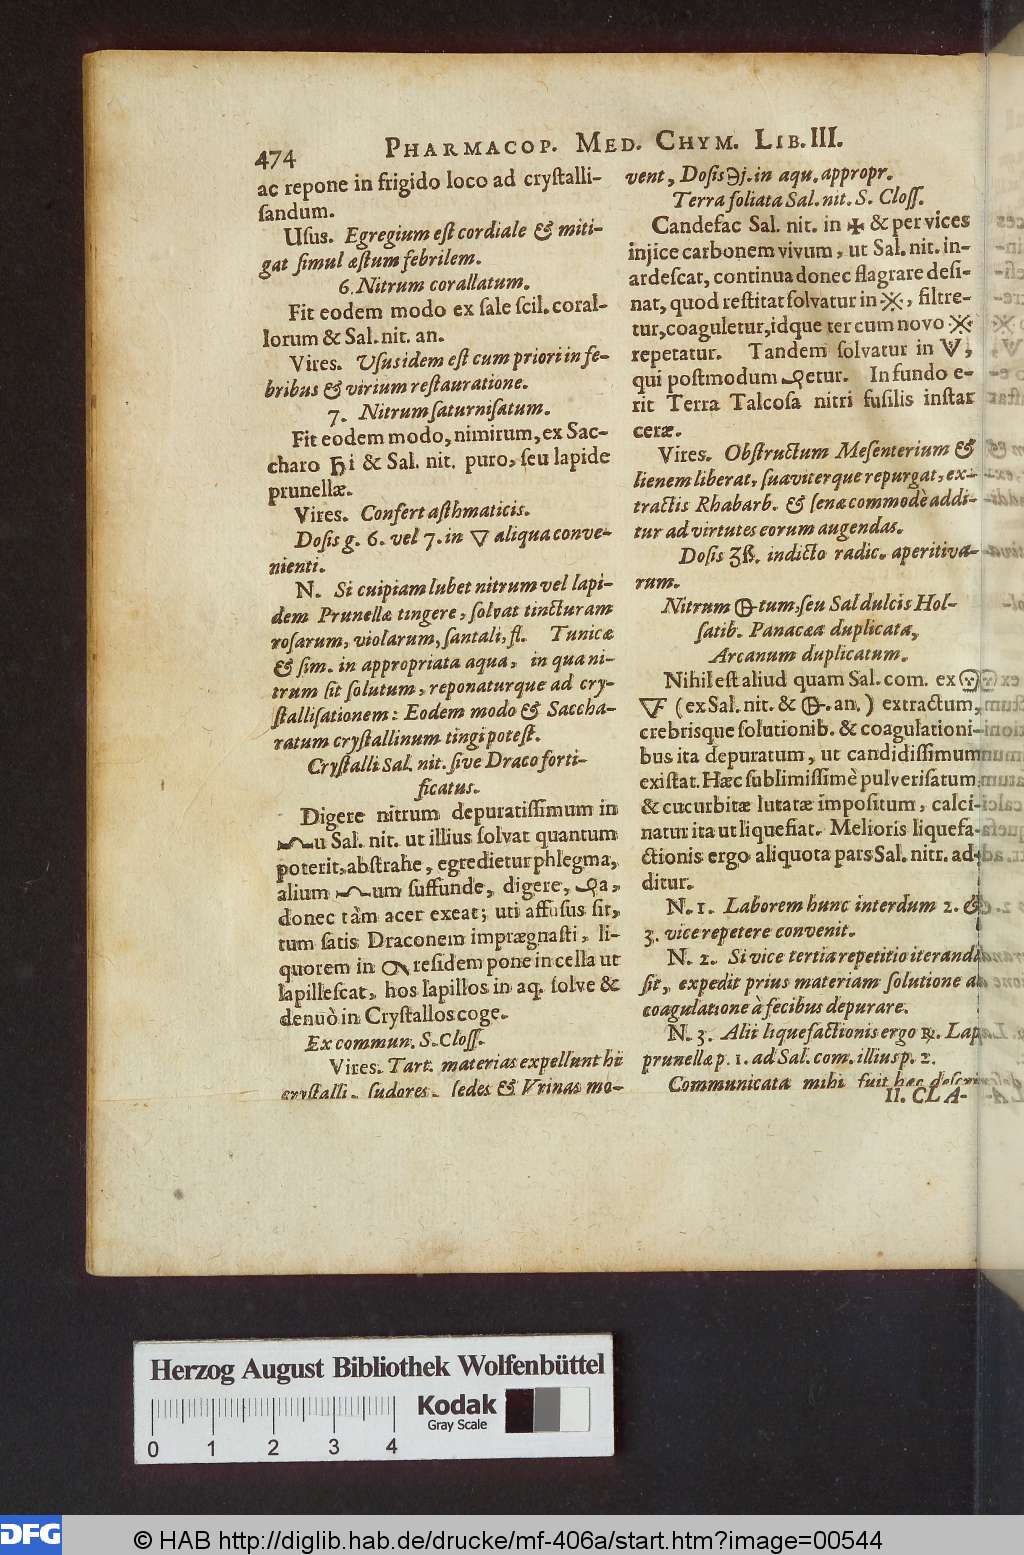 474 PHARMACOP. MED. CHYM. LIB. III.
ac repone in frigido loco ad cryſtalli-
ſandum.
Uſus. Egregium eſt cordiale & miti-
gat ſimul æſtum febrilem.
6. Nitrum corallatum.
Fit eodem modo ex ſale ſcil. coral-
lorum & Sal. nit. an.
Vires. Uſus idem eſt cum priori in fe-
bribus & virium reſtauratione.
7. Nitrum ſaturniſatum.
Fit eodem modo, nimirum, ex Sac-
charo ♄i & Sal. nit. puro, ſeu lapide
prunellæ.
Vires. Confert aſthmaticis.
Doſis g. 6. vel 7. in 🜄 aliqua conve-
nienti.
N. Si cuipiam lubet nitrum vel lapi-
dem Prunellæ tingere, ſolvat tincturam
roſarum, violarum, ſantali, fl. Tunicæ
& ſim. in appropriata aqua, in qua ni-
trum ſit ſolutum, reponaturque ad cry-
ſtalliſationem: Eodem modo & Saccha-
ratum cryſtallinum tingi poteſt.
Cryſtalli Sal. nit. ſive Draco forti-
ficatus.
Digere nitrum depuratiſſimum in
u Sal. nit. ut illius ſolvat quantum
poterit, abſtrahe, egredietur phlegma,
alium um ſuffunde, digere, a,
donec tàm acer exeat; uti affuſus ſit,
tum ſatis Draconem imprægnaſti, li-
quorem in reſidem pone in cella ut
lapilleſcat, hos lapillos in aq. ſolve &
denuò in Cryſtallos coge.
Ex commun. S. Cloſſ.
Vires. Tart. materias expellunt hi
cryſtalli, ſudores, ſedes & Vrinas mo-
vent, Doſis ℈j. in aqu. appropr.
Terra foliata Sal. nit. S. Cloſſ.
Candefac Sal. nit. in ✠ & per vices
injice carbonem vivum, ut Sal. nit. in-
ardeſcat, continua donec flagrare deſi-
nat, quod reſtitat ſolvatur in ※, filtre-
tur, coaguletur, idque ter cum novo ※
repetatur. Tandem ſolvatur in ,
qui poſtmodum etur. In fundo e-
rit Terra Talcoſa nitri fuſilis inſtar
ceræ.
Vires. Obſtructum Meſenterium &
lienem liberat, ſuaviterque repurgat, ex-
tractis Rhabarb. & ſenæ commodè addi-
tur ad virtutes eorum augendas.
Doſis ʒß. in dicto radic. aperitiva-
rum.
Nitrum tum, ſeu Sal dulcis Hol-
ſatib. Panacæa duplicata,
Arcanum duplicatum.
Nihil eſt aliud quam Sal. com. ex
(ex Sal. nit. & . an.) extractum,
crebrisque ſolutionib. & coagulationi-
bus ita depuratum, ut candidiſſimum
exiſtat. Hæc ſublimiſſimè pulveriſatum
& cucurbitæ lutatæ impoſitum, calci-
natur ita ut liquefiat. Melioris liquefa-
ctionis ergo aliquota pars Sal. nitr. ad-
ditur.
N. 1. Laborem hunc interdum 2. &
3. vice repetere convenit.
N. 2. Si vice tertia repetitio iteranda
ſit, expedit prius materiam ſolutione ac
coagulatione à fecibus depurare.
N. 3. Alii liquefactionis ergo ℞. Lap.
prunellæ p. 1. ad Sal. com. illius p. 2.
Communicata mihi fuit hæc
II. CLA-
Herzog August Bibliothek Wolfenbüttel
Kodak
Gray Scale
0 1 2 3 4
DFG © HAB http://diglib.hab.de/drucke/mf-406a/start.htm?image=00544